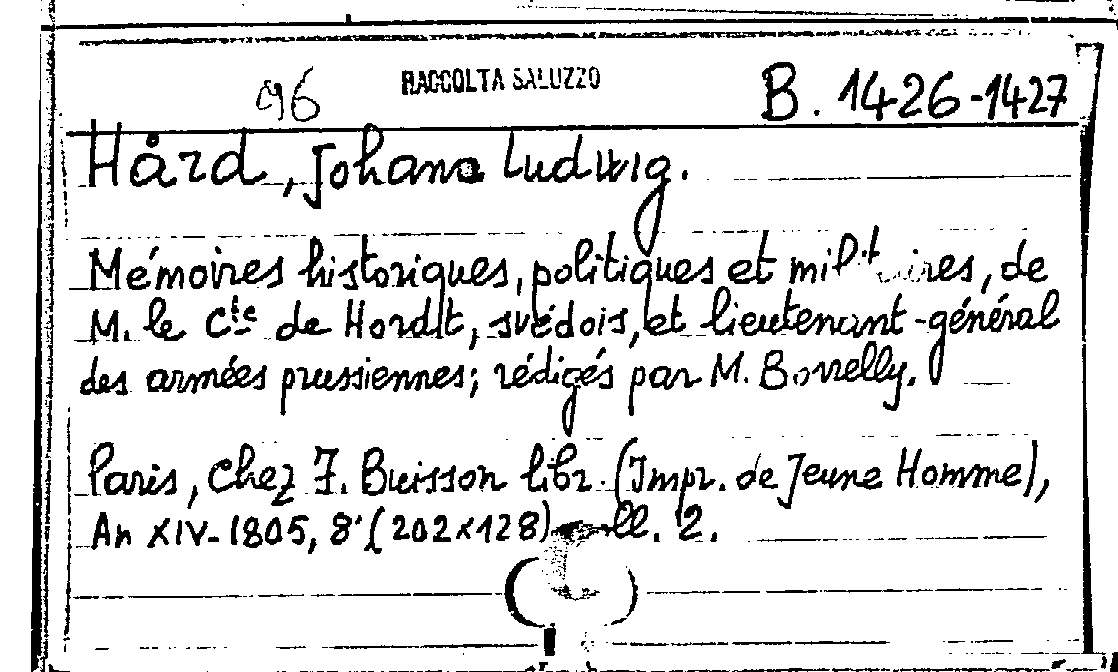 96 RACCOLTA SALUZZO B. 1426-1427
Hård, Johann Ludwig.
Mémoires historiques, politiques et militaires, de
M. le Cte de Hordt, svédois, et lieutenant-général
des armées prussiennes; rédigés par M. Borrelly.
Paris, Chez F. Buisson libr. (Impr. de Jeune Homme),
An XIV-1805, 8° (202x128) ll. 2.